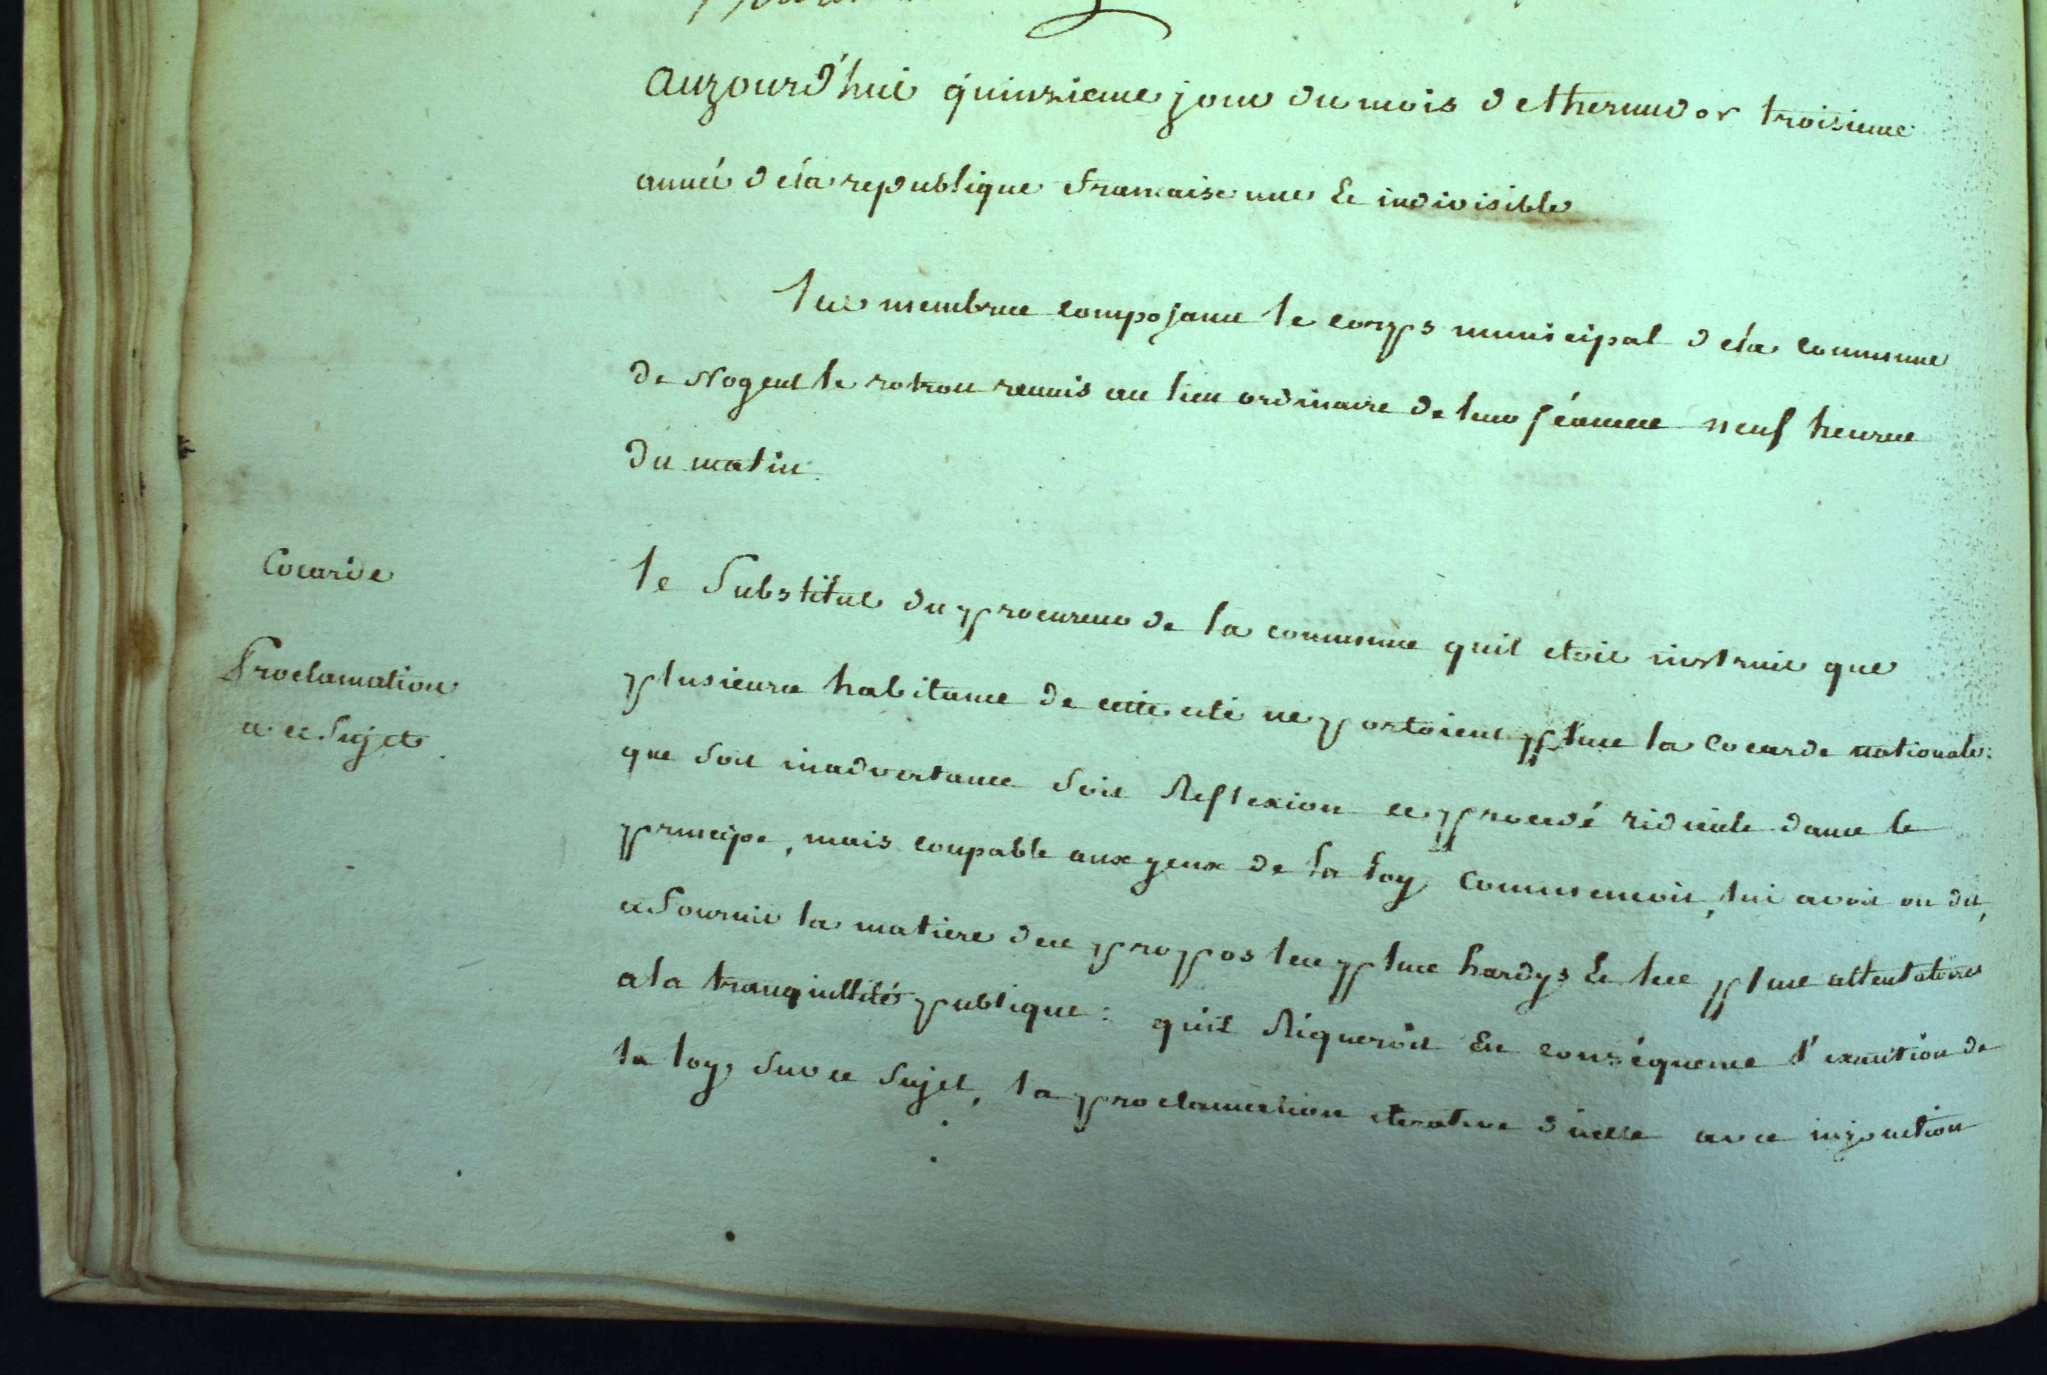 aujourd'hui quinzieme jour du mois de thermidor troisieme
année de la republique francaise une Et indivisible
les membres composans le corps municipal de la commune
de Nogent le rotrou reunis au lieu ordinaire de leurs séances neuf heures
du matin.
Cocarde
Proclamation
a ce Sujet.
le Substitut du procureur de la commune quil etoit instruit que
plusieurs habitans de cette cité ne portoient plus la Cocarde nationale:
que Soit inadvertance Soit Reflexion ce procédé ridicule dans le
principe, mais coupable aux yeux de la loy Commencoit, lui avoit on dit,
a Fournir la matiere des propos les plus hardys Et les plus attentatoires
a la tranquillité publique: quil Requeroit En conséquence l'exécution de
la loy Sur ce Sujet, la proclamation iterative d'icelle avec injonction